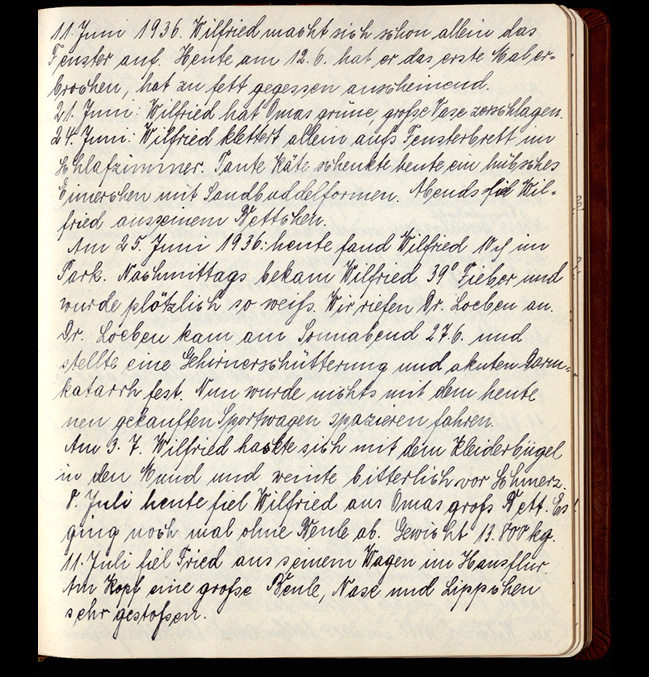 11. Juni 1936. Wilfried macht sich schon allein das
Fenster auf. Heute am 12.6. hat er das erste Mal er-
brochen, hat zu fett gegessen anscheinend.
21. Juni: Wilfried hat Omas grüne, große Vase zerschlagen.
24. Juni: Wilfried klettert allein aufs Fensterbrett im
Schlafzimmer. Tante Käte schenkte heute ein hübsches
Eimerchen mit Sandbuddelformen. Abends fiel Wil-
fried aus seinem Bettchen.
Am 25 Juni 1936: heute fand Wilfried im
Park. Nachmittags bekam Wilfried 39° Fieber und
wurde plötzlich so weiß. Wir riefen Dr. Loeben an.
Dr. Loeben kam am Sonnabend 27.6. und
stellte eine Gehirnerschütterung und akuten Darm-
katarrh fest. Nun wurde nichts mit dem heute
neu gekauften Sportwagen spazieren fahren.
Am 3. 7. Wilfried hackte sich mit dem Kleiderbügel
in den Mund und weinte bitterlich vor Schmerz.
8. Juli heute fiel Wilfried aus Omas groß Bett. Es
ging noch mal ohne Beule ab. Gewicht 13.800 kg.
11. Juli fiel Fried aus seinem Wagen im Hausflur.
Am Kopf eine große Beule, Nase und Lippchen
sehr gestoßen.